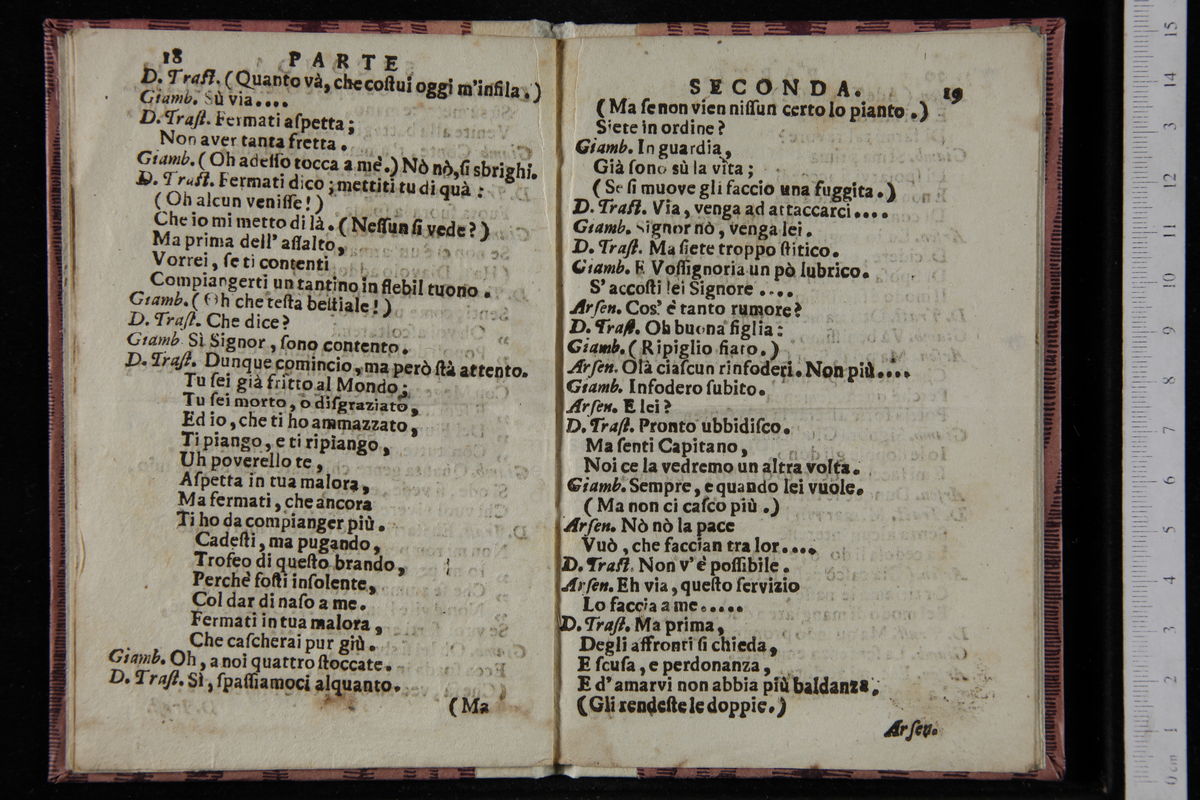 18 PARTE
D. Traſt. (Quanto và, che coſtui oggi m'infila.)
Giamb. Sù via....
D. Traſt. Fermati aſpetta;
Non aver tanta fretta.
Giamb. (Oh adeſſo tocca a me.) Nò nò, ſi sbrighi.
D. Traſt. Fermati dico; mettiti tu di quà:
(Oh alcun veniſſe!)
Che io mi metto di là. (Neſſun ſi vede?)
Ma prima dell' aſſalto,
Vorrei, ſe ti contenti
Compiangerti un tantino in flebil tuono.
Giamb. (Oh che teſta beſtiale!)
D. Traſt. Che dice?
Giamb. Sì Signor, ſono contento.
D. Traſt. Dunque comincio, ma però ſtà attento.
Tu ſei già fritto al Mondo;
Tu ſei morto, o diſgraziato,
Ed io, che ti ho ammazzato,
Ti piango, e ti ripiango,
Uh poverello te,
Aſpetta in tua malora,
Ma fermati, che ancora
Ti ho da compianger più.
Cadeſti, ma pugando,
Trofeo di queſto brando,
Perchè foſti inſolente,
Col dar di naſo a me.
Fermati in tua malora,
Che caſcherai pur giù.
Giamb. Oh, a noi quattro ſtoccate.
D. Traſt. Sì, ſpaſſiamoci alquanto.
(Ma
SECONDA. 19
(Ma ſe non vien niſſun certo lo pianto.)
Siete in ordine?
Giamb. In guardia,
Già ſono sù la vita;
(Se ſi muove gli faccio una fuggita.)
D. Traſt. Via, venga ad attaccarci....
Giamb. Signor nò, venga lei.
D. Traſt. Ma ſiete troppo ſtitico.
Giamb. E Voſſignoria un pò lubrico.
S' accoſti lei Signore ....
Arſen. Cos' è tanto rumore?
D. Traſt. Oh buona figlia:
Giamb. (Ripiglio fiato.)
Arſen. Olà ciaſcun rinfoderi. Non più....
Giamb. Infodero ſubito.
Arſen. E lei?
D. Traſt. Pronto ubbidiſco.
Ma ſenti Capitano,
Noi ce la vedremo un altra volta.
Giamb. Sempre, e quando lei vuole.
(Ma non ci caſco più.)
Arſen. Nò nò la pace
Vuò, che faccian tra lor....
D. Traſt. Non v'è poſſibile.
Arſen. Eh via, queſto ſervizio
Lo faccia a me.....
D. Traſt. Ma prima,
Degli affronti ſi chieda,
E ſcuſa, e perdonanza,
E d' amarvi non abbia più baldanza.
(Gli rendeſte le doppie.)
Arſen.